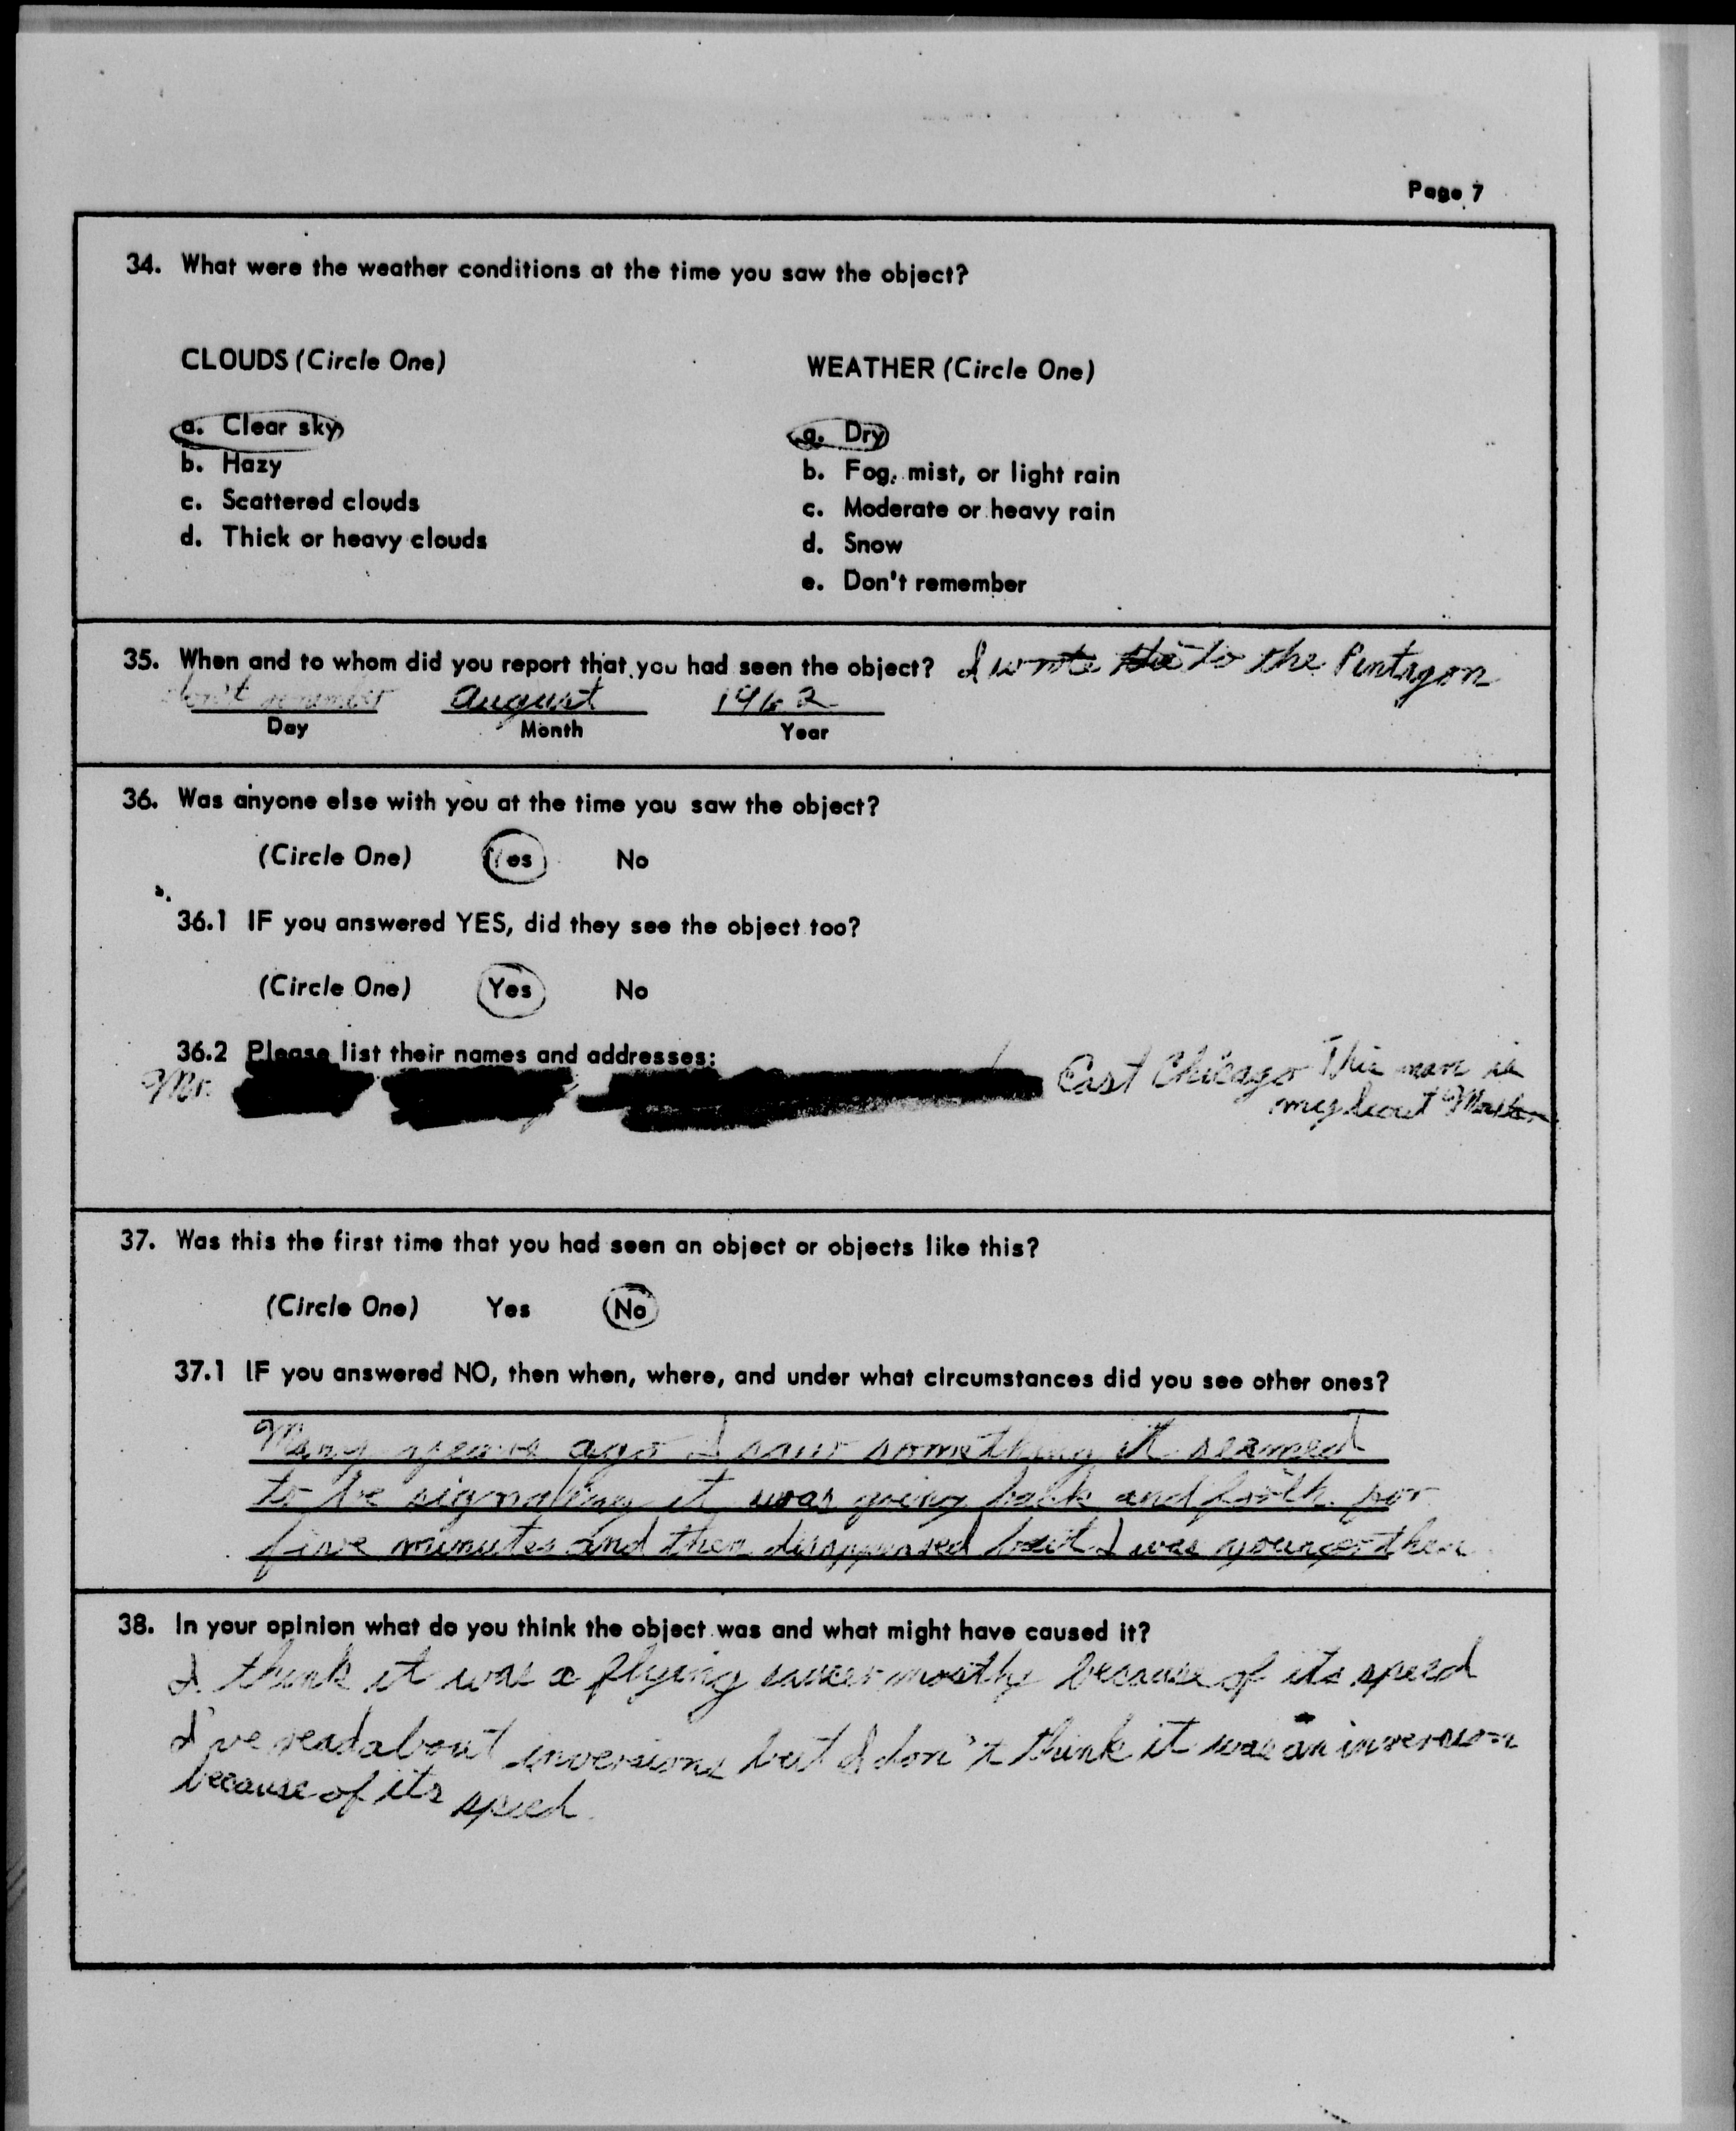 Page 7
34. What were the weather conditions at the time you saw the object?
CLOUDS (Circle One)
a. Clear sky
b. Hazy
c. Scattered clouds
d. Thick or heavy clouds
WEATHER (Circle One)
a. Dry
b. Fog, mist, or light rain
c. Moderate or heavy rain
d. Snow
e. Don't remember
35. When and to whom did you report that you had seen the object? I wrote to the Pentagon
don't remember August 1962
Day Month Year
36. Was anyone else with you at the time you saw the object?
(Circle One) Yes No
36.1 IF you answered YES, did they see the object too?
(Circle One) Yes No
36.2 Please list their names and addresses:
Mr. East Chicago This man is
my Scout Master
37. Was this the first time that you had seen an object or objects like this?
(Circle One) Yes No
37.1 IF you answered NO, then when, where, and under what circumstances did you see other ones?
Many years ago I saw something it seemed
to be signaling it was going back and forth for
five minutes and then disappeared but I was younger then
38. In your opinion what do you think the object was and what might have caused it?
I think it was a flying saucer mostly because of its speed
I've read about inversions but I don't think it was an inversion
because of its speed.